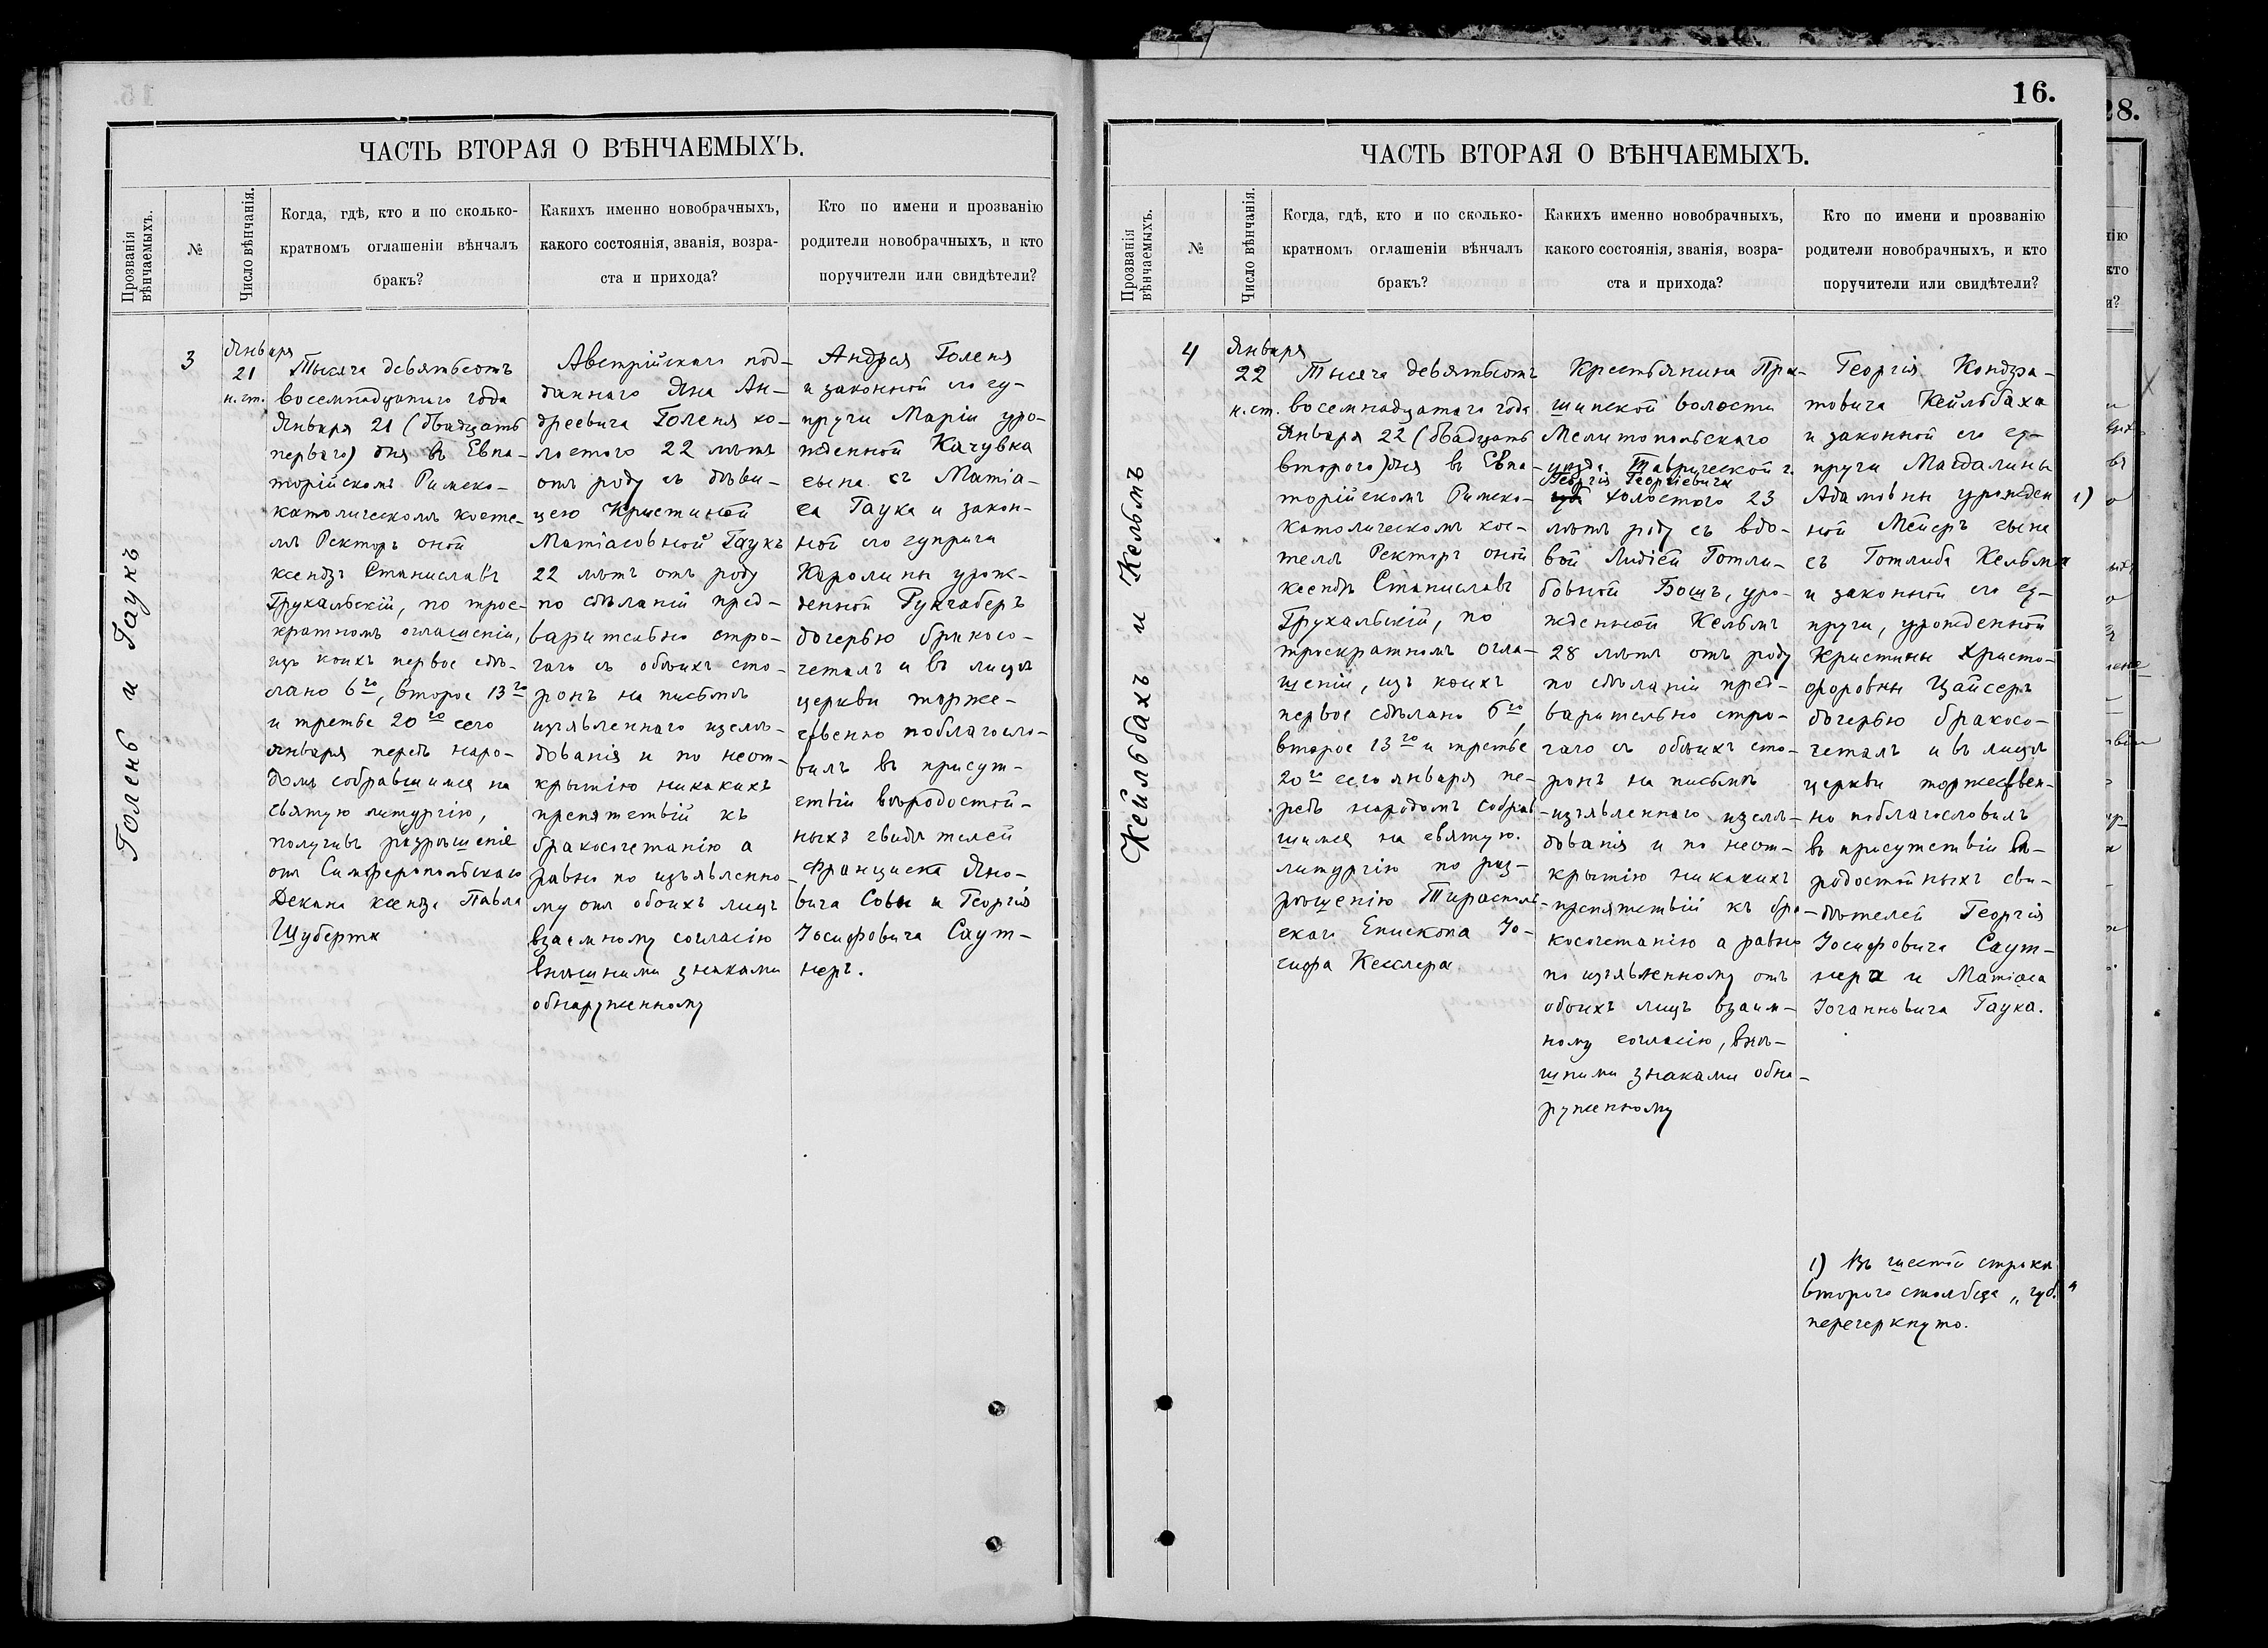 ЧАСТЬ ВТОРАЯ О ВѢНЧАЕМЫХЪ.
Прозванія
вѣнчаемыхъ.
№
Число вѣнчанія.
Когда, гдѣ, кто и по сколько-
кратномъ оглашеніи вѣнчалъ
бракъ?
Какихъ именно новобрачныхъ,
какого состоянія, званія, возра-
ста и прихода?
Кто по имени и прозванію
родители новобрачныхъ, и кто
поручители или свидѣтели?
Голень и Гаукъ
3
Января
21
н. ст.
Тысяча девятьсотъ
восемнадцатаго года
Января 21 (двадцать
перваго) дня въ Евпа-
торійскомъ Римско-
католическомъ косте-
лѣ Ректоръ оной
ксендзъ Станиславъ
Грухальскій, по трое-
кратномъ оглашеніи,
изъ коихъ первое сдѣ-
лано 6го, второе 13го
и третье 20го сего
января передъ наро-
домъ собравшимся на
святую литургію,
получивъ разрѣшеніе
отъ Симферопольскаго
Декана ксендза Павла
Шуберта
Австрійскаго под-
даннаго Яна Ан-
дреевича Голеня хо-
лостого 22 лѣтъ
отъ роду съ дѣви-
цею Кристиной
Матіасовной Гаукъ
22 лѣтъ отъ роду
по сдѣланіи пред-
варительно стро-
гаго съ обоихъ сто-
ронъ на письмѣ
изъявленнаго изслѣ-
дованія и по неот-
крытію никакихъ
препятствій къ
бракосочетанію а
равно по изъявленно-
му отъ обоихъ лицъ
взаимному согласію
внѣшними знаками
обнаруженному
Андрея Голеня
и законной его су-
пруги Маріи уро-
жденной Качувка
сына съ Матіа-
са Гаука и закон-
ной его супруги
Каролины урож-
денной Рукгаберъ
дочерью бракосо-
четалъ и въ лицѣ
церкви торже-
ственно поблагосло-
вилъ въ присут-
ствіи вѣродостой-
ныхъ свидѣтелей
Франциска Яно-
вича Совы и Георгія
Іосифовича Саут-
неръ.
16.
ЧАСТЬ ВТОРАЯ О ВѢНЧАЕМЫХЪ.
Прозванія
вѣнчаемыхъ.
№
Число вѣнчанія.
Когда, гдѣ, кто и по сколько-
кратномъ оглашеніи вѣнчалъ
бракъ?
Какихъ именно новобрачныхъ,
какого состоянія, званія, возра-
ста и прихода?
Кто по имени и прозванію
родители новобрачныхъ, и кто
поручители или свидѣтели?
Кейльбахъ и Кельмъ
4
Января
22
н. ст.
Тысяча девятьсотъ
восемнадцатаго года
Января 22 (двадцать
второго) дня въ Евпа-
торійскомъ Римско-
католическомъ кос-
телѣ Ректоръ оной
ксендзъ Станиславъ
Грухальскій, по
троекратномъ огла-
шеніи, изъ коихъ
первое сдѣлано 6го,
второе 13го и третье
20го сего января пе-
редъ народомъ собрав-
шимся на святую
литургію по раз-
рѣшенію Тирасполь-
скаго Епископа Іо-
сифа Кесслера
Крестьянина При-
шипской волости
Мелитопольскаго
уѣзда Таврической г.
Георгія Георгіевича
губ. холостого 23
лѣтъ роду съ вдо-
вой Лидіей Готли-
бовной Бошъ, уро-
жденной Кельмъ
28 лѣтъ отъ роду
по сдѣланіи пред-
варительно стро-
гаго съ обоихъ сто-
ронъ на письмѣ
изъявленнаго изслѣ-
дованія и по неот-
крытію никакихъ
препятствій къ бра-
косочетанію а равно
по изъявленному отъ
обоихъ лицъ взаим-
ному согласію, внѣ-
шними знаками обна-
руженному
Георгія Кондра-
товича Кейльбаха
и законной его су-
пруги Магдалины
Адамовны урожден 1)
ной Мейеръ сына
съ Готлиба Кельма
и законной его су-
пруги, урожденной
Кристины Христо-
форовны Цайсеръ
дочерью бракосо-
четалъ и въ лицѣ
церкви торжествен-
но поблагословилъ
въ присутствіи вѣ-
родостойныхъ сви-
дѣтелей Георгія
Іосифовича Саут-
нера и Матіаса
Іоганновича Гаука.
1) Въ шестой строкѣ
второго столбца „губ."
перечеркнуто.
28.